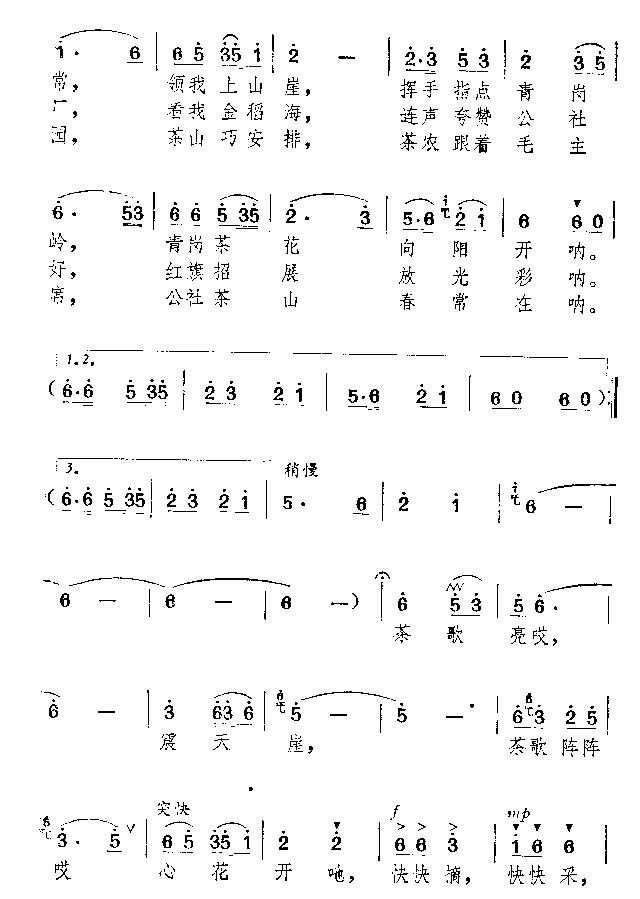 1· 6 | 6 5 35 1 | 2 — | 2·3 5 3 | 2 3 5
常, 领我 上山 崖, 挥手 指点 青 岗
厂, 看我 金稻 海, 连声 夸赞 公 社
国, 茶山 巧安 排, 茶农 跟着 毛 主
6· 53 | 6 6 5 35 | 2· 3 | 5·6 2 1 | 6 60
岭, 青岗 茶 花 向 阳 开 呐。
好, 红旗 招 展 放 光 彩 呐。
席, 公社 茶 山 春 常 在 呐。
1.2.
(6·6 5 35 | 2 3 2 1 | 5·6 2 1 | 60 60):|
3. 稍慢
(6·6 5 35 | 2 3 2 1 | 5· 6 | 2 1 | 6 —
6 — | 6 — | 6 —) | 6 5 3 | 5 6·
茶 歌 亮哎,
6 — | 3 63 6 | 5 — | 5 — | 6 3 2 5
震 天 崖, 茶歌 阵阵
突快 f mp
3· 5 | 6 5 35 1 | 2 2 | 6 6 3 | 1 6 6
哎 心 花 开 吔, 快快 摘, 快快 采,